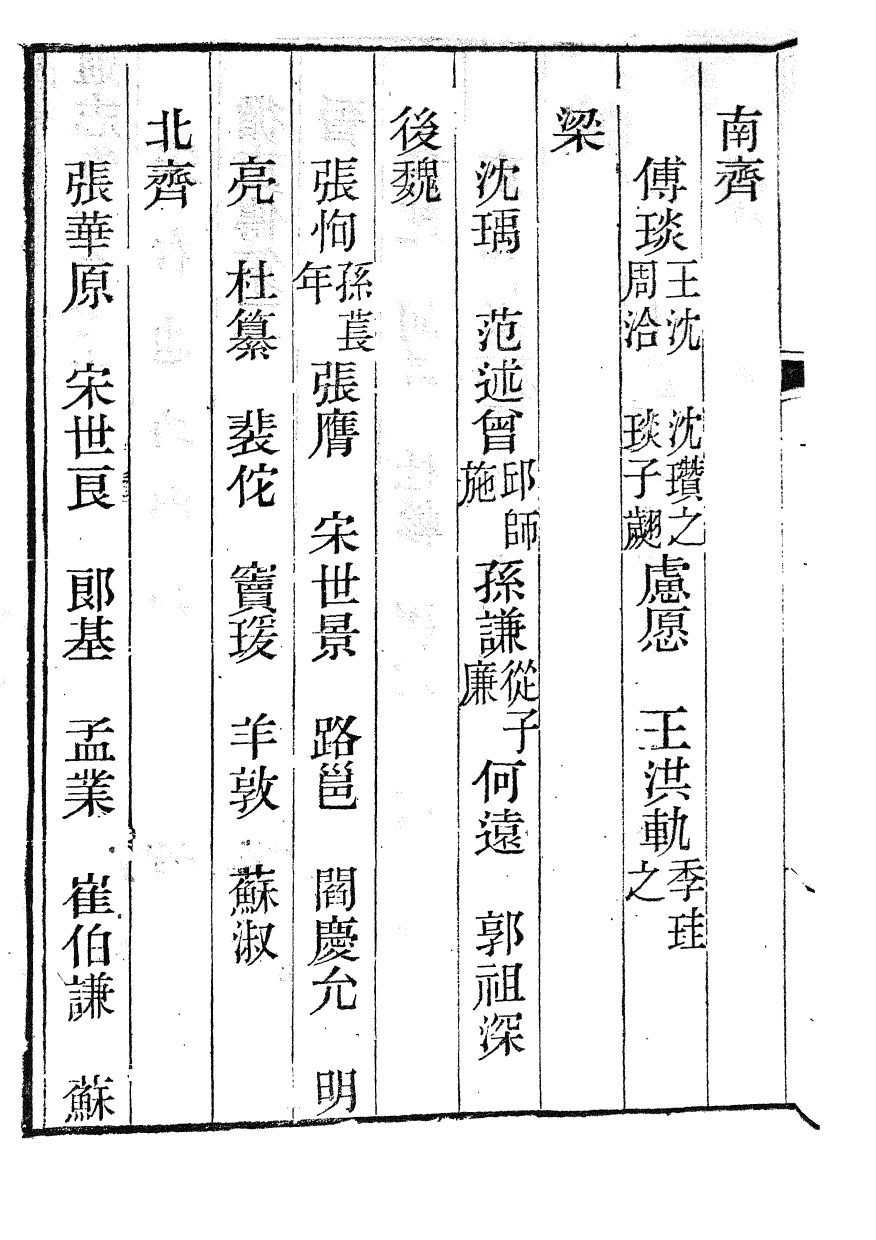 南齊
傅琰王沈周洽 沈瓚之琰子翽慮愿 王洪軌季珪之
梁
沈瑀 范述曾邱師施孫謙從子廉何遠 郭祖深
後魏
張恂孫萇年張膺 宋世景 路邕 閻慶允 明
亮 杜纂 裴佗 竇瑗 羊敦 蘇淑
北齊
張華原 宋世良 郎基 孟業 崔伯謙 蘇